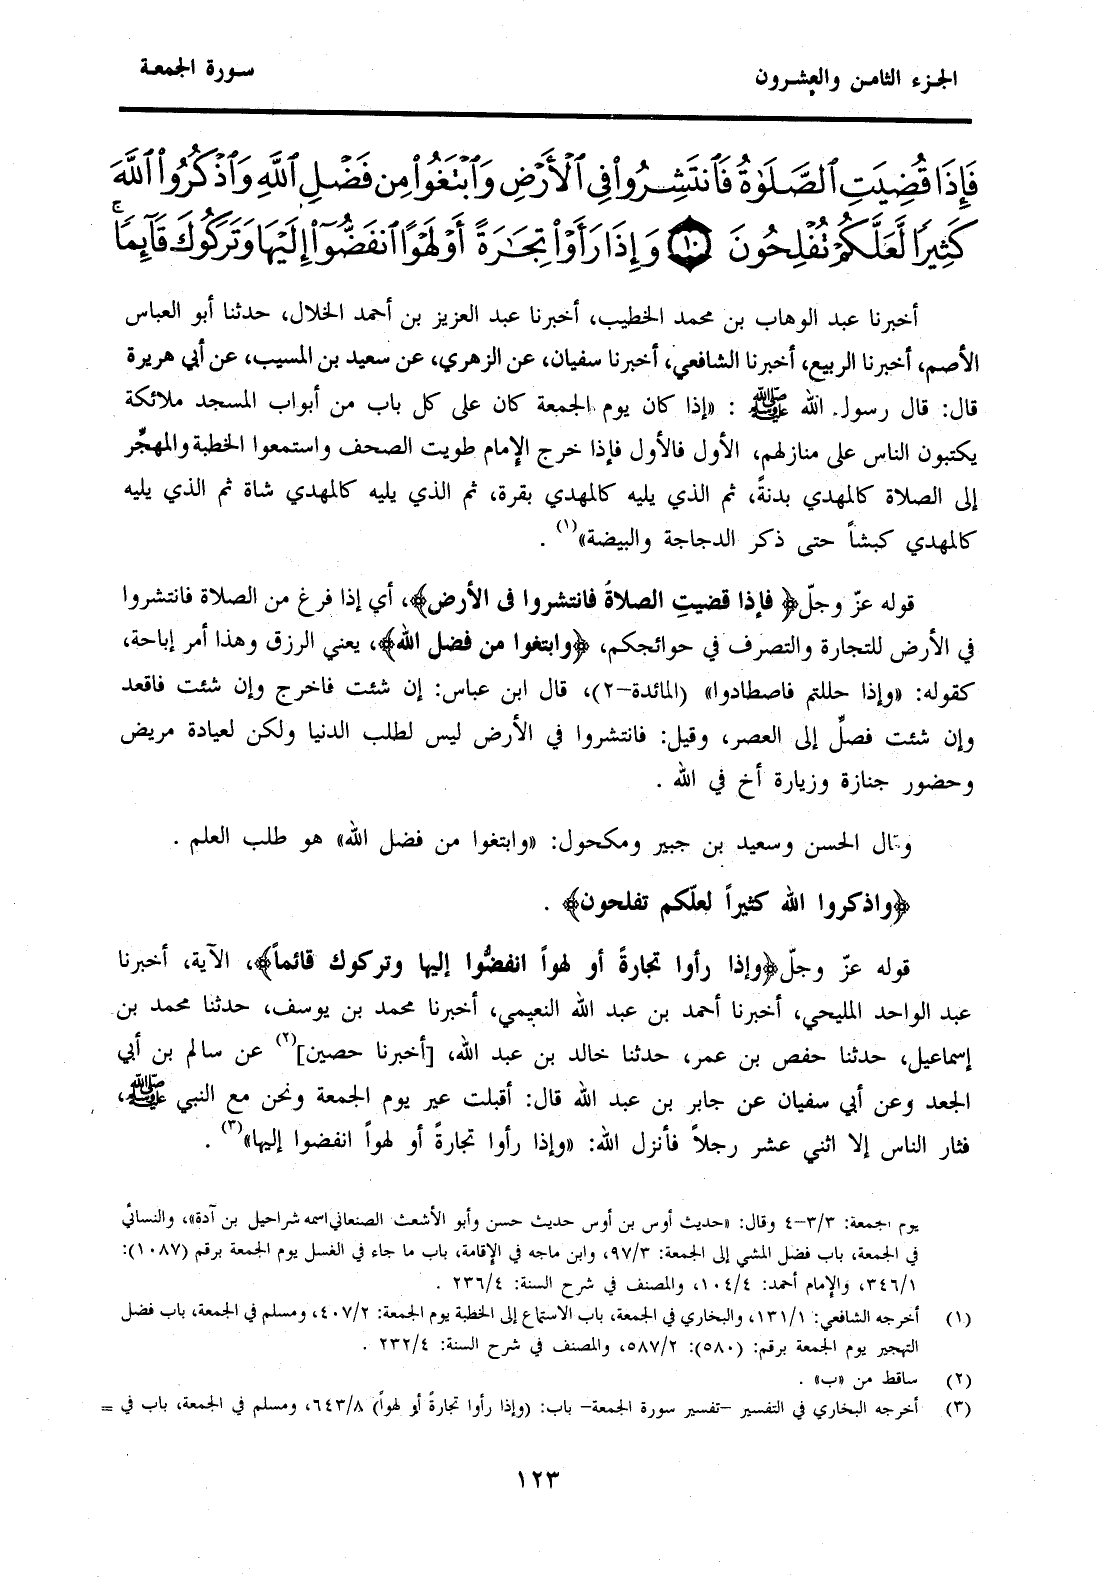 الجزء الثامن والعشرون
سورة الجمعة
فَإِذَا قُضِيَتِ ٱلصَّلَوٰةُ فَٱنتَشِرُوا۟ فِى ٱلْأَرْضِ وَٱبْتَغُوا۟ مِن فَضْلِ ٱللَّهِ وَٱذْكُرُوا۟ ٱللَّهَ
كَثِيرًا لَّعَلَّكُمْ تُفْلِحُونَ ١٠ وَإِذَا رَأَوْا۟ تِجَٰرَةً أَوْ لَهْوًا ٱنفَضُّوٓا۟ إِلَيْهَا وَتَرَكُوكَ قَآئِمًا ۚ
أخبرنا عبد الوهاب بن محمد الخطيب، أخبرنا عبد العزيز بن أحمد الخلال، حدثنا أبو العباس
الأصم، أخبرنا الربيع، أخبرنا الشافعي، أخبرنا سفيان، عن الزهري، عن سعيد بن المسيب، عن أبي هريرة
قال: قال رسول الله ﷺ : «إذا كان يوم الجمعة كان على كل باب من أبواب المسجد ملائكة
يكتبون الناس على منازلهم، الأول فالأول فإذا خرج الإمام طويت الصحف واستمعوا الخطبة والمهجِّر
إلى الصلاة كالمهدي بدنةً، ثم الذي يليه كالمهدي بقرة، ثم الذي يليه كالمهدي شاة ثم الذي يليه
كالمهدي كبشاً حتى ذكر الدجاجة والبيضة»(١) .
قوله عزّ وجلّ﴿ فإذا قضيتِ الصلاةُ فانتشروا فى الأرض﴾، أي إذا فرغ من الصلاة فانتشروا
في الأرض للتجارة والتصرف في حوائجكم، ﴿وابتغوا من فضل الله﴾، يعني الرزق وهذا أمر إباحة،
كقوله: «وإذا حللتم فاصطادوا» (المائدة–٢)، قال ابن عباس: إن شئت فاخرج وإن شئت فاقعد
وإن شئت فصلِّ إلى العصر، وقيل: فانتشروا في الأرض ليس لطلب الدنيا ولكن لعيادة مريض
وحضور جنازة وزيارة أخ في الله .
وقال الحسن وسعيد بن جبير ومكحول: «وابتغوا من فضل الله» هو طلب العلم .
﴿واذكروا الله كثيراً لعلّكم تفلحون﴾ .
قوله عزّ وجلّ﴿وإذا رأوا تجارةً أو لهواً انفضُّوا إليها وتركوك قائماً﴾، الآية، أخبرنا
عبد الواحد المليحي، أخبرنا أحمد بن عبد الله النعيمي، أخبرنا محمد بن يوسف، حدثنا محمد بن
إسماعيل، حدثنا حفص بن عمر، حدثنا خالد بن عبد الله، [أخبرنا حصين](٢) عن سالم بن أبي
الجعد وعن أبي سفيان عن جابر بن عبد الله قال: أقبلت عير يوم الجمعة ونحن مع النبي ﷺ،
فثار الناس إلا اثني عشر رجلاً فأنزل الله: «وإذا رأوا تجارةً أو لهواً انفضوا إليها»(٣) .
يوم الجمعة: ٣/٣–٤ وقال: «حديث أوس بن أوس حديث حسن وأبو الأشعث الصنعاني اسمه شراحيل بن آدة»، والنسائي
في الجمعة، باب فضل المشي إلى الجمعة: ٩٧/٣، وابن ماجه في الإقامة، باب ما جاء في الغسل يوم الجمعة برقم (١٠٨٧):
٣٤٦/١، والإمام أحمد: ١٠٤/٤، والمصنف في شرح السنة: ٢٣٦/٤ .
(١) أخرجه الشافعي: ١٣١/١، والبخاري في الجمعة، باب الاستماع إلى الخطبة يوم الجمعة: ٤٠٧/٢، ومسلم في الجمعة، باب فضل
التهجير يوم الجمعة برقم: (٥٨٠): ٥٨٧/٢، والمصنف في شرح السنة: ٢٣٢/٤ .
(٢) ساقط من «ب» .
(٣) أخرجه البخاري في التفسير –تفسير سورة الجمعة– باب: (وإذا رأوا تجارةً أو لهواً) ٦٤٣/٨، ومسلم في الجمعة، باب في =
١٢٣